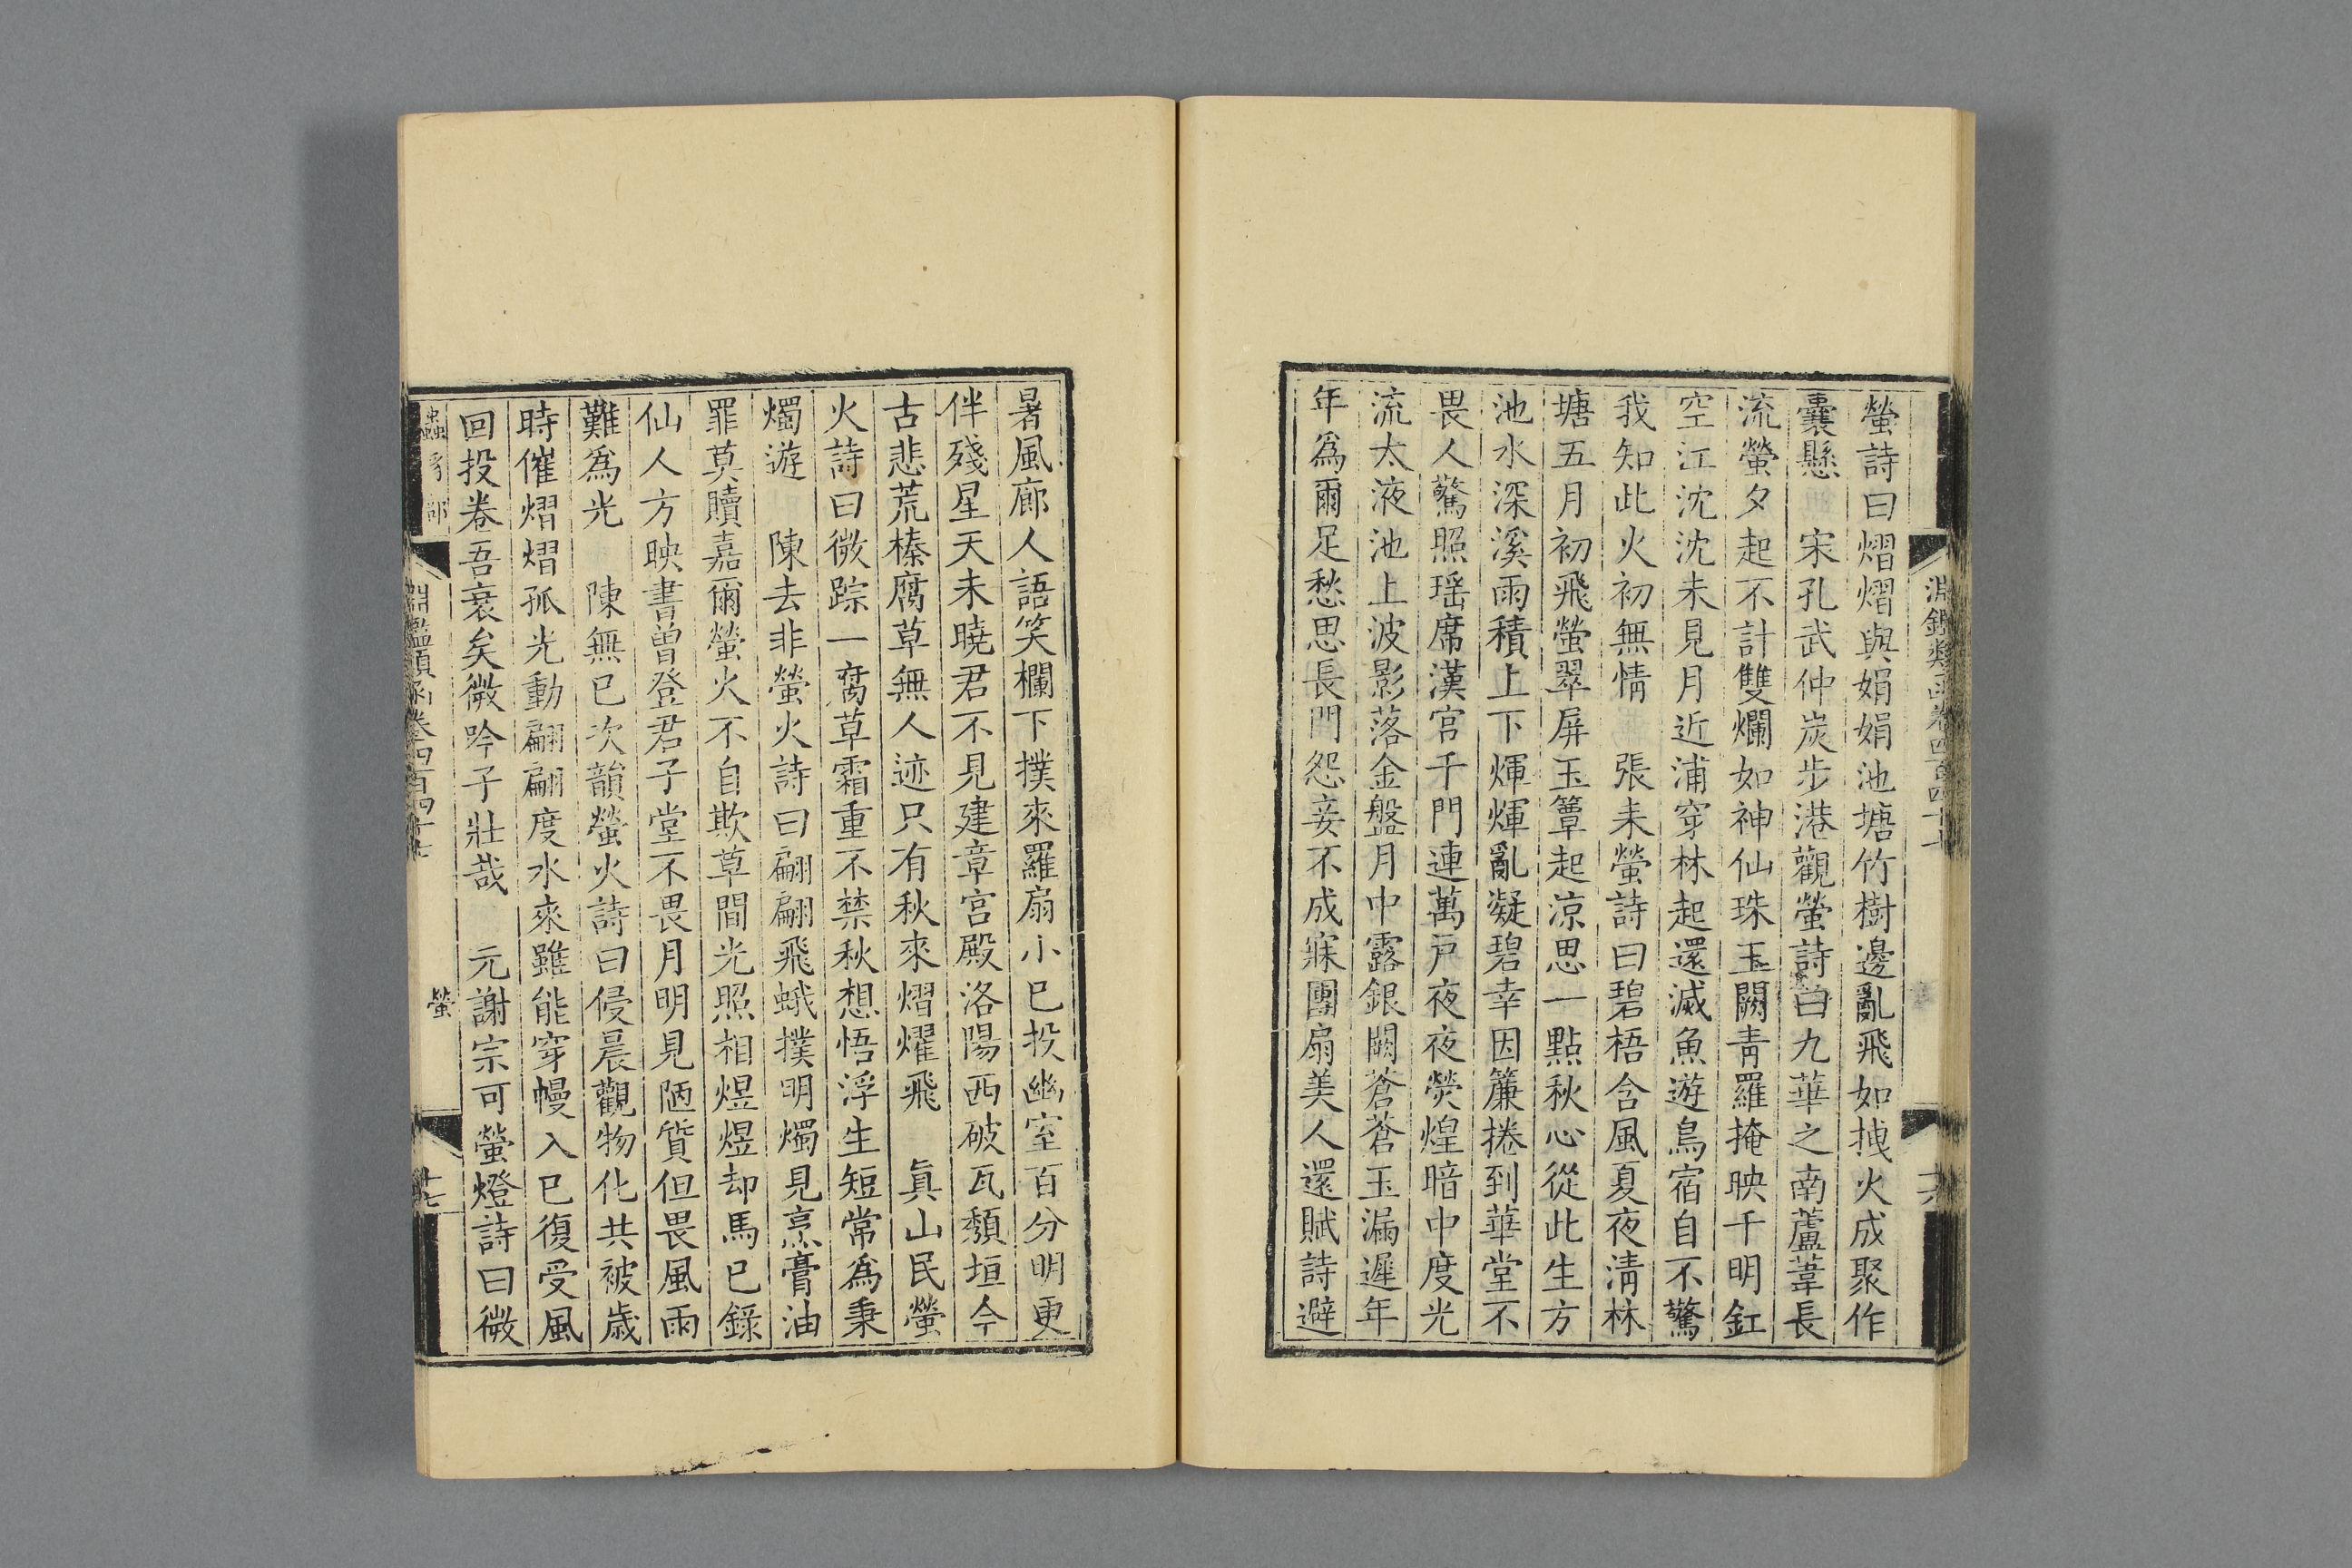 螢詩曰熠熠與娟娟池塘竹樹邊亂飛如拽火成聚作
囊懸　宋孔武仲炭步港觀螢詩曰九華之南蘆葦長
流螢夕起不計雙爛如神仙珠玉闕青羅掩映千明釭
空江沈沈未見月近浦穿林起還滅魚遊鳥宿自不驚
我知此火初無情　張耒螢詩曰碧梧含風夏夜清林
塘五月初飛螢翠屏玉簟起涼思一點秋心從此生方
池水深溪雨積上下煇煇亂凝碧幸因簾捲到華堂不
畏人驚照瑶席漢宮千門連萬戸夜夜熒煌暗中度光
流太液池上波影落金盤月中露銀闕蒼蒼玉漏遲年
年爲爾足愁思長門怨妾不成寐團扇美人還賦詩避
暑風廊人語笑欄下撲來羅扇小已投幽室百分明更
伴殘星天未曉君不見建章宮殿洛陽西破瓦頽垣今
古悲荒榛腐草無人迹只有秋來熠燿飛　眞山民螢
火詩曰微踪一腐草霜重不禁秋想悟浮生短常爲秉
燭遊　陳去非螢火詩曰翩翩飛蛾撲明燭見烹膏油
罪莫贖嘉爾螢火不自欺草間光照相煜煜却馬已錄
仙人方映書曾登君子堂不畏月明見陋質但畏風雨
難爲光　陳無已次韻螢火詩曰侵晨觀物化共被歲
時催熠熠孤光動翩翩度水來雖能穿幔入已復受風
回投卷吾衰矣微吟子壯哉　元謝宗可螢燈詩曰微
蟲豸部
淵鑑類函卷四百四十七
螢
十七